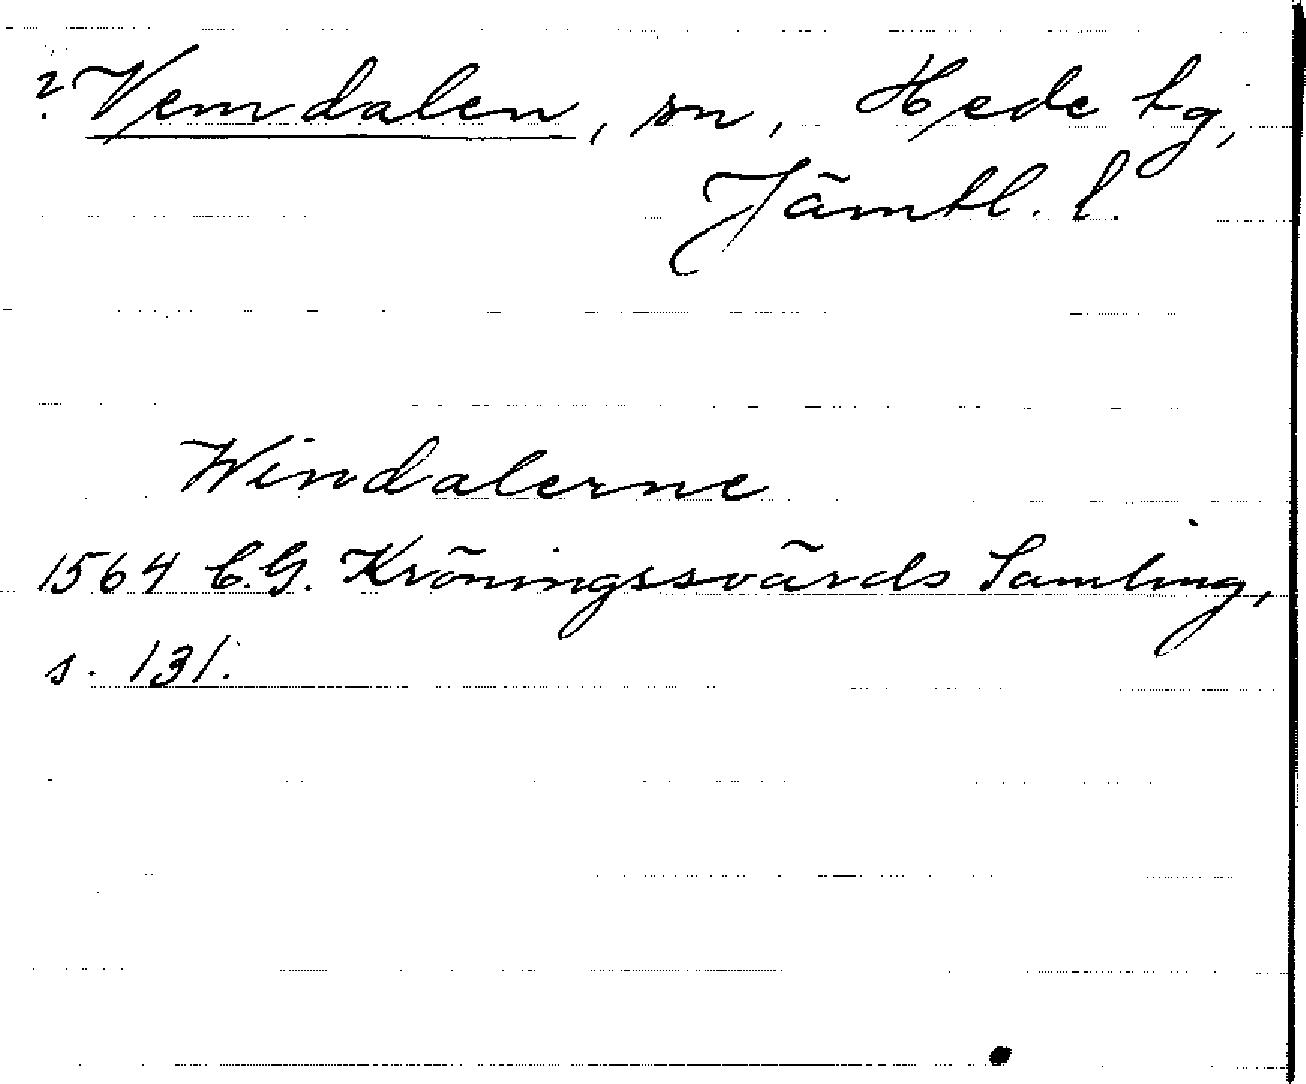 ? Vemdalen, sn, Hede tg,
Jämtl. l.
Windalerne
1564 C.G. Kröningssvärds Samling,
s. 131.